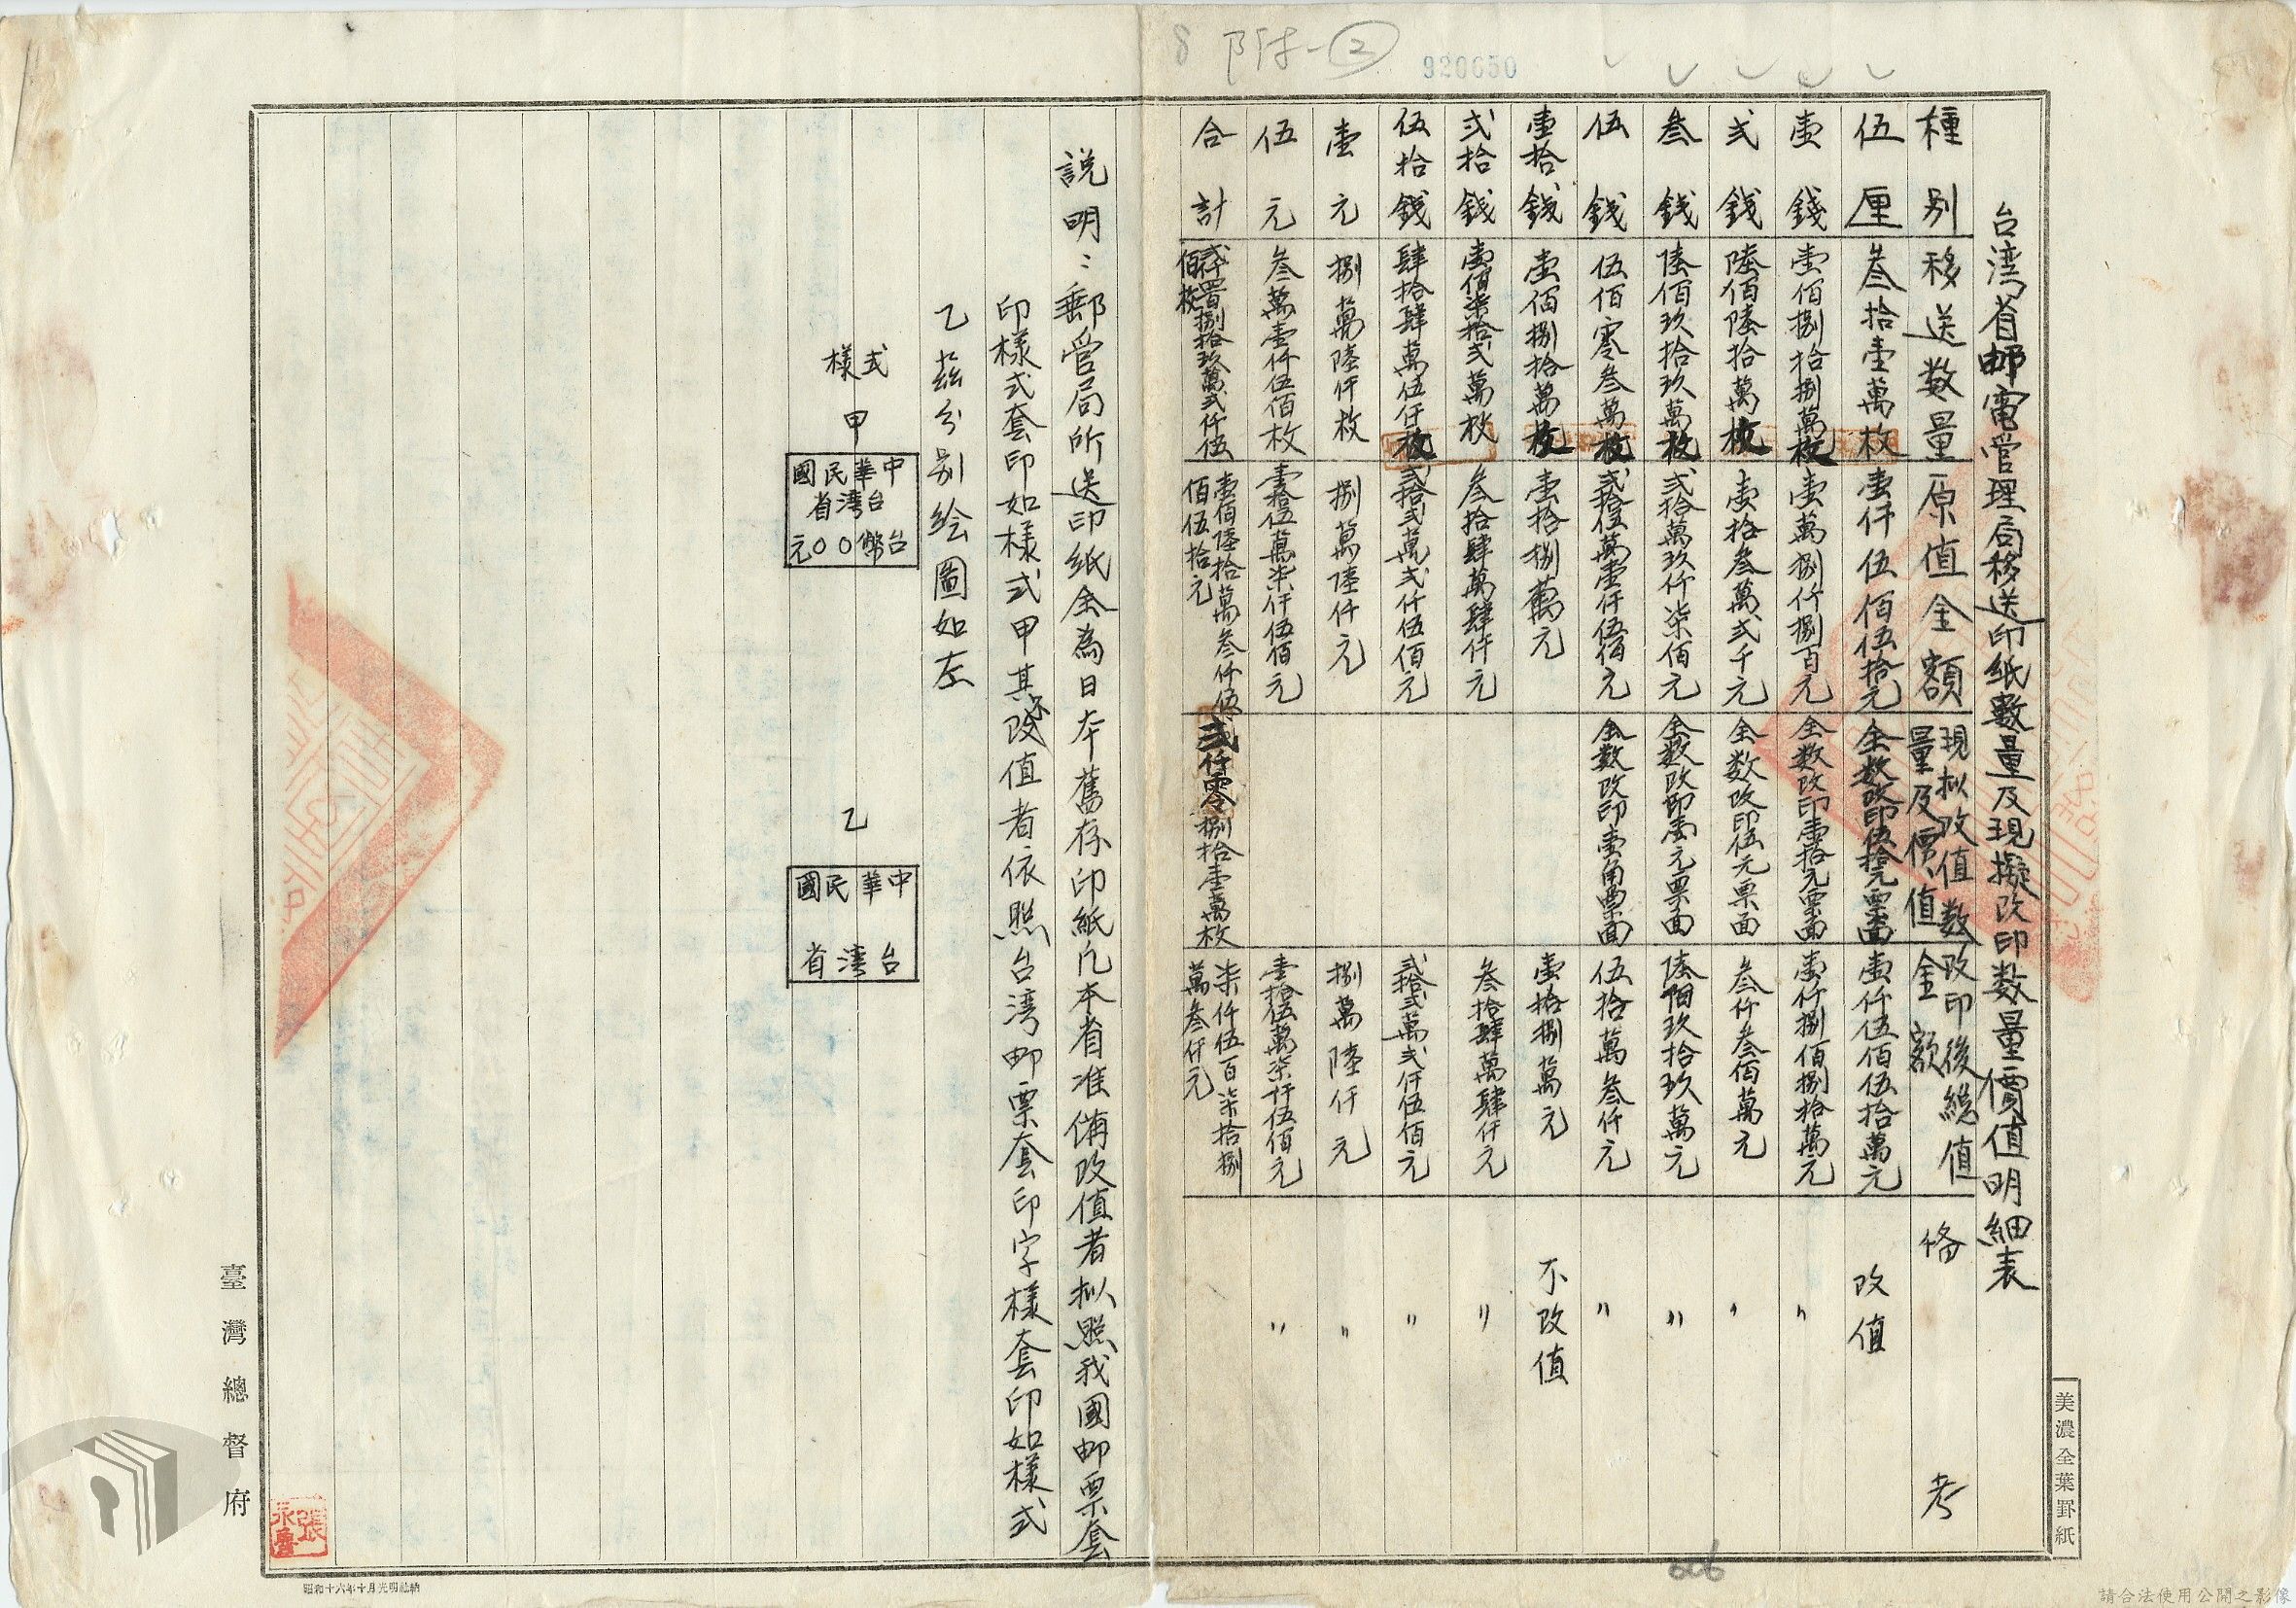 8 附-②
920650
台湾省邮電管理局移送印紙數量及現擬改印数量價值明細表
種別 移送数量 原值金額 現拟改值数量及價值 改印後總值金額 俻考
伍厘 叁拾壹萬枚 壹仟伍佰伍拾元 全数改印伍拾元票面 壹仟伍佰伍拾萬元 改值
壹錢 壹佰捌拾捌萬枚 壹萬捌仟捌百元 全数改印壹拾元票面 壹仟捌佰捌拾萬元 〃
弍錢 陸佰陸拾萬枚 壹拾叁萬弍千元 全数改印伍元票面 叁仟叁佰萬元 〃
叁錢 陸佰玖拾玖萬枚 弍拾萬玖仟柒佰元 全数改印壹元票面 陸佰玖拾玖萬元 〃
伍錢 伍佰零叁萬枚 弍拾伍萬壹仟伍佰元 全数改印壹角票面 伍拾萬叁仟元 〃
壹拾錢 壹佰捌拾萬枚 壹拾捌萬元 壹拾捌萬元 不改值
弍拾錢 壹佰柒拾弍萬枚 叁拾肆萬肆仟元 叁拾肆萬肆仟元 〃
伍拾錢 肆拾肆萬伍仟枚 弍拾弍萬弍仟伍佰元 弍拾弍萬弍仟伍佰元 〃
壹元 捌萬陸仟枚 捌萬陸仟元 捌萬陸仟元 〃
伍元 叁萬壹仟伍佰枚 壹拾伍萬柒仟伍佰元 壹拾伍萬柒仟伍佰元 〃
合計 弍仟肆百捌拾玖萬弍仟伍佰枚 壹佰陸拾萬叁仟伍佰伍拾元 弍仟零捌拾壹萬枚 柒仟伍百柒拾捌萬叁仟元
説明：郵管局所送印紙全為日本舊存印紙凡本省准俻改值者拟照我國邮票套
印樣式套印如樣式甲其不改值者依照台湾邮票套印字樣套印如樣式
乙茲分别绘圖如左
樣式
甲
國民華中
省湾台
元〇〇幣台
乙
國民華中
省湾台
臺灣總督府
張永
美濃全葉罫紙
昭和十六年十月光明社納
206
請合法使用公開之影像